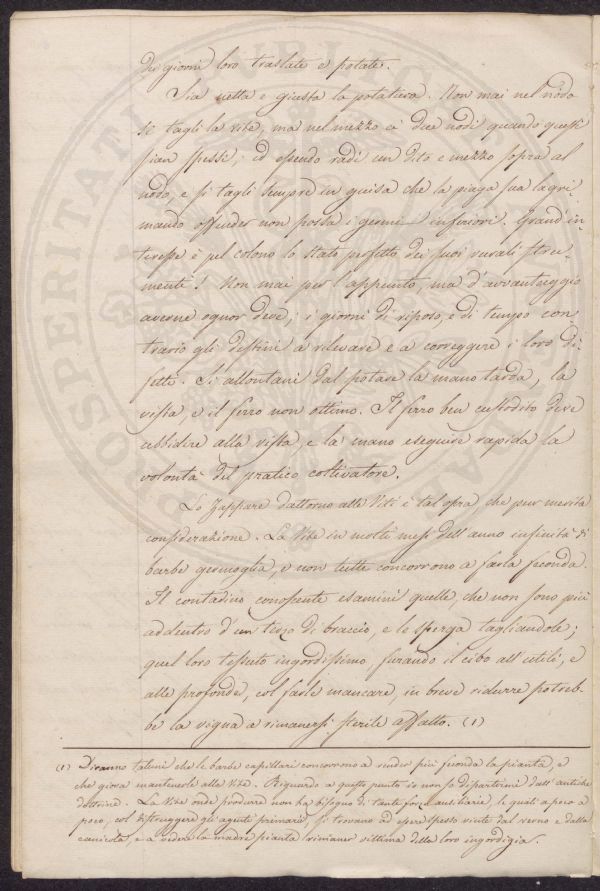 dei giorni loro traslate e potate.
Sia netta e giusta la potatura. Non mai nel nodo
si tagli la vite, ma nel mezzo a due nodi quando questi
sian spessi; ed essendo radi un dito e mezzo sopra al
nodo, e si tagli sempre in guisa che la piaga sua lagri-
mando offender non possa i germi inferiori. Grand'in-
teresse è pel colono lo stato perfetto dei suoi rurali stru-
menti! Non mai per l'appunto, ma d'avvantaggio
averne ognor deve; i giorni di riposo, e di tempo con-
trario gli destini a rilevare e a correggere i loro di-
fetti. Si allontani dal potare la mano tarda, la
vista, e il ferro non ottimo. Il ferro ben custodito deve
ubbidire alla vista, e la mano eseguire rapida la
volontà del pratico coltivatore.
Lo Zappare dattorno alle Viti è tal opra, che pur merita
considerazione. La Vite in molti mesi dell'anno infinità di
barbe germoglia, e non tutte concorrono a farla feconda.
Il contadino conoscente esamini quelle, che non sono più
addentro d'un terzo di braccio, e le sperga tagliandole;
quel loro tessuto ingordissimo, furando il cibo all'utili, e
alle profonde, col farle mancare, in breve ridurre potreb-
be la vigna a rimanersi sterile affatto. (1)
(1) Diranno taluni che le barbe capillari concorrono a render più feconda la pianta, e
che giova mantenerle alla Vite. Riguardo a questo punto io non so dipartirmi dall'antiche
dottrine. La Vite onde produrre non ha bisogno di tante forze ausiliarie, le quali a poco a
poco, col distruggere gli agenti primarii, si trovano ad essere spesso vinte dal verno e dalla
canicola, e a vedere la madre pianta rimaner vittima della loro ingordigia.
PROSPERITATI PUBLICAE